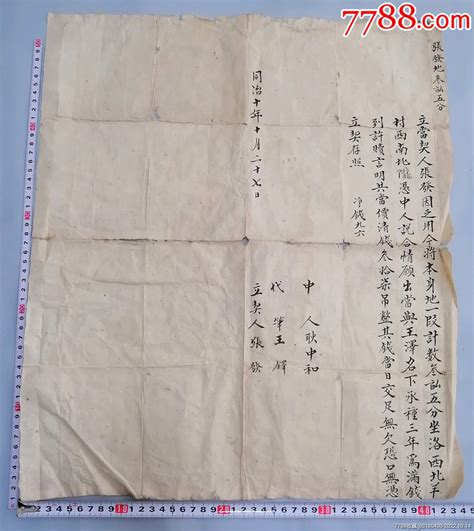 7788.com
張發地叁畝五分
立當契人張發因乏用今將本身地一段計数叁畝五分坐洛西北羊
村西南北隴憑中人說合情願出當與王澤名下承種三年為滿錢
到許贖言明共當價清錢叁拾柒吊整其錢當日交足無欠恐口無憑
立契存照 净錢九六
同治十年十月二十七日
中人耿中和
代筆王鐸
立契人張發